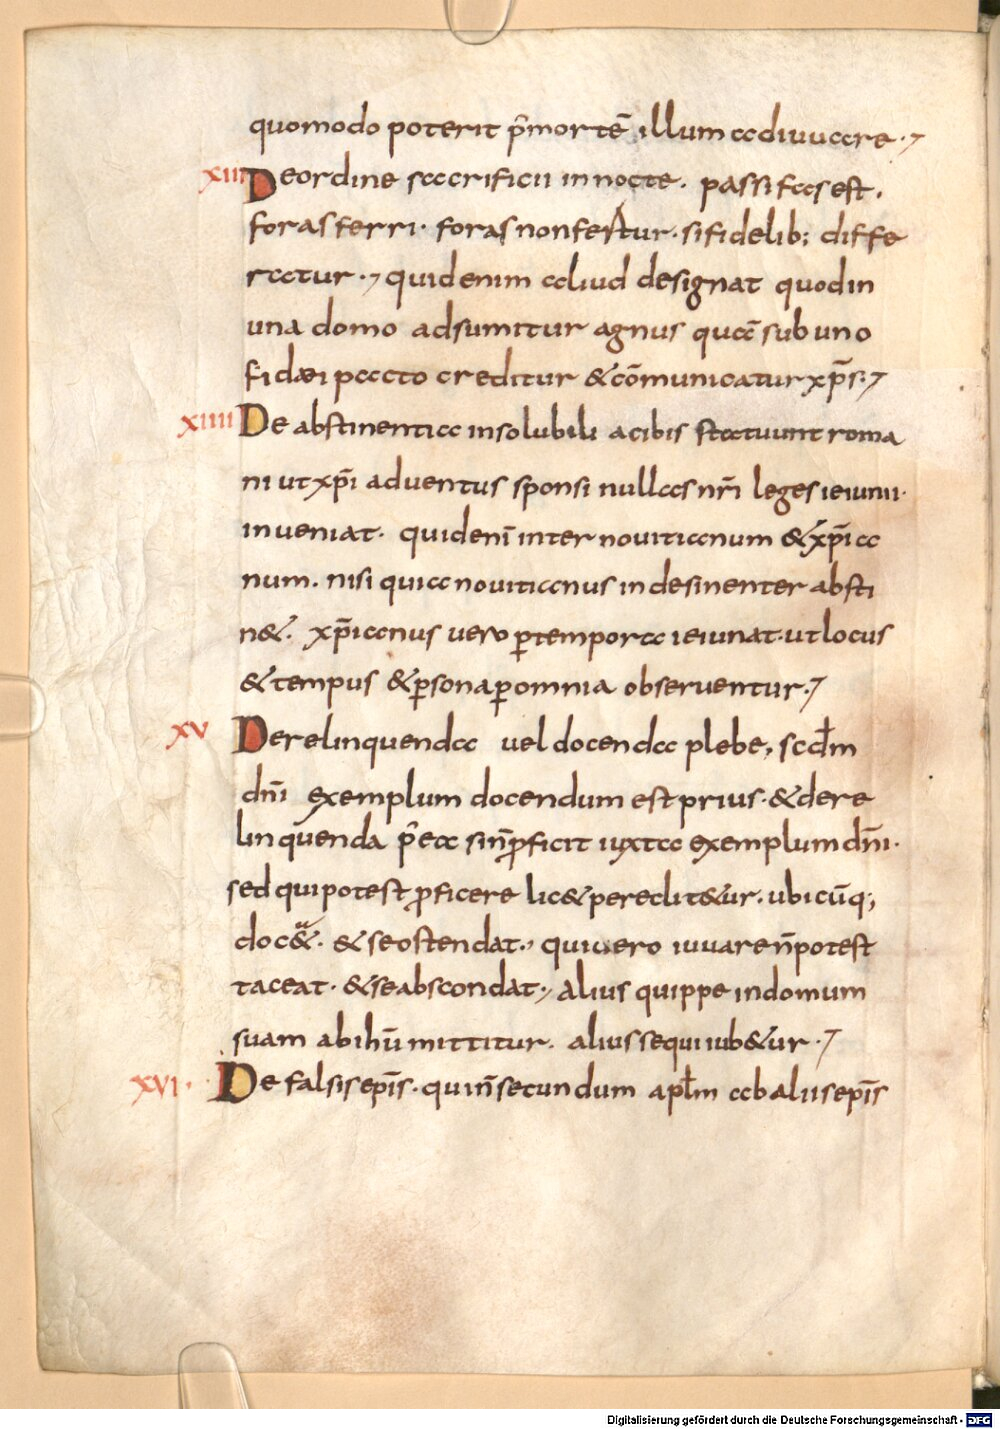 quomodo poterit p̄ mortē illum adiuuare·⁊
XIII Deordine sacrificii in nocte. passi fas est.
foras ferri· foras non fertur· si fidelib; diffe
ratur·⁊ quid enim aliud designat quod in
una domo adsumitur agnus quā sub uno
fidæi pacto creditur &cōmunicatur xp̄s·⁊
XIIII De abstinentia insolubili a cibis statuunt roma
ni ut xp̄i aduentus sponsi nullas nr̄i leges ieiunii·
inueniat· quid enī inter nouitianum & xp̄ia
num. nisi quia nouitianus indesinenter absti
n&· xp̄ianus uero ꝑ tempora ieiunat· ut locus
& tempus & ꝑsona ꝑ omnia obseruentur·⁊
XV Derelinquenda uel docenda plebe, scd̄m
dn̄i exemplum docendum est prius· & dere
linquenda p̄ ea si n̄ ꝓficit iuxta exemplum dn̄i·
sed qui potest ꝓficere lic& pereclit&ur· ubicūq;
doc&· & se ostendat·, qui uero iuuare n̄ potest
taceat· & se abscondat·, alius quippe in domum
suam ab ihū mittitur. alius sequi iub&ur·⁊
XVI· De falsis ep̄is· qui n̄ secundum apl̄m ab aliis ep̄is
Digitalisierung gefördert durch die Deutsche Forschungsgemeinschaft - DFG